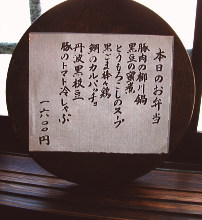 本日のお弁当
豚肉の柳川鍋
黒豆の蜜煮
とうもろこしのスープ
黒ごま棒々鶏
鯛のカルパッチョ
丹波黒枝豆
豚のトマト冷しゃぶ
一六〇〇円